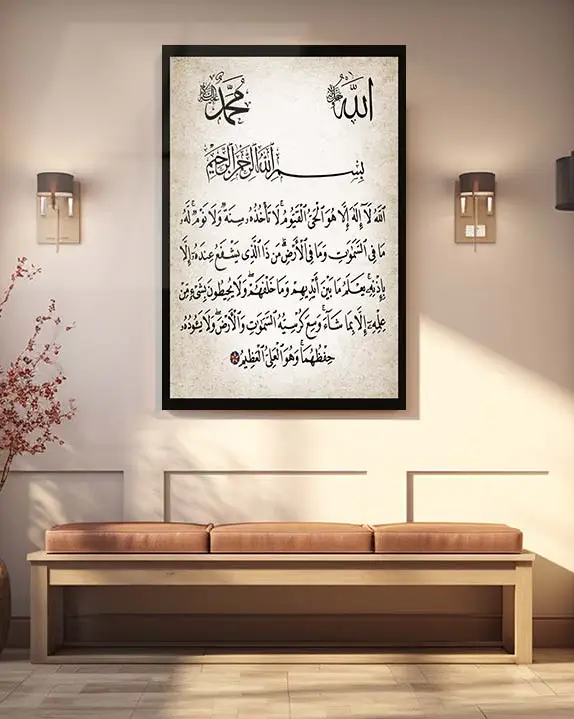 الله جل جلاله محمد ﷺ
بسم الله الرحمن الرحيم
ٱللَّهُ لَآ إِلَٰهَ إِلَّا هُوَ ٱلْحَىُّ ٱلْقَيُّومُ ۚ لَا تَأْخُذُهُۥ سِنَةٌ وَلَا نَوْمٌ ۚ لَّهُۥ
مَا فِى ٱلسَّمَٰوَٰتِ وَمَا فِى ٱلْأَرْضِ ۗ مَن ذَا ٱلَّذِى يَشْفَعُ عِندَهُۥٓ إِلَّا
بِإِذْنِهِۦ ۚ يَعْلَمُ مَا بَيْنَ أَيْدِيهِمْ وَمَا خَلْفَهُمْ ۖ وَلَا يُحِيطُونَ بِشَىْءٍ مِّنْ
عِلْمِهِۦٓ إِلَّا بِمَا شَآءَ ۚ وَسِعَ كُرْسِيُّهُ ٱلسَّمَٰوَٰتِ وَٱلْأَرْضَ ۖ وَلَا يَـُٔودُهُۥ
حِفْظُهُمَا ۚ وَهُوَ ٱلْعَلِىُّ ٱلْعَظِيمُ